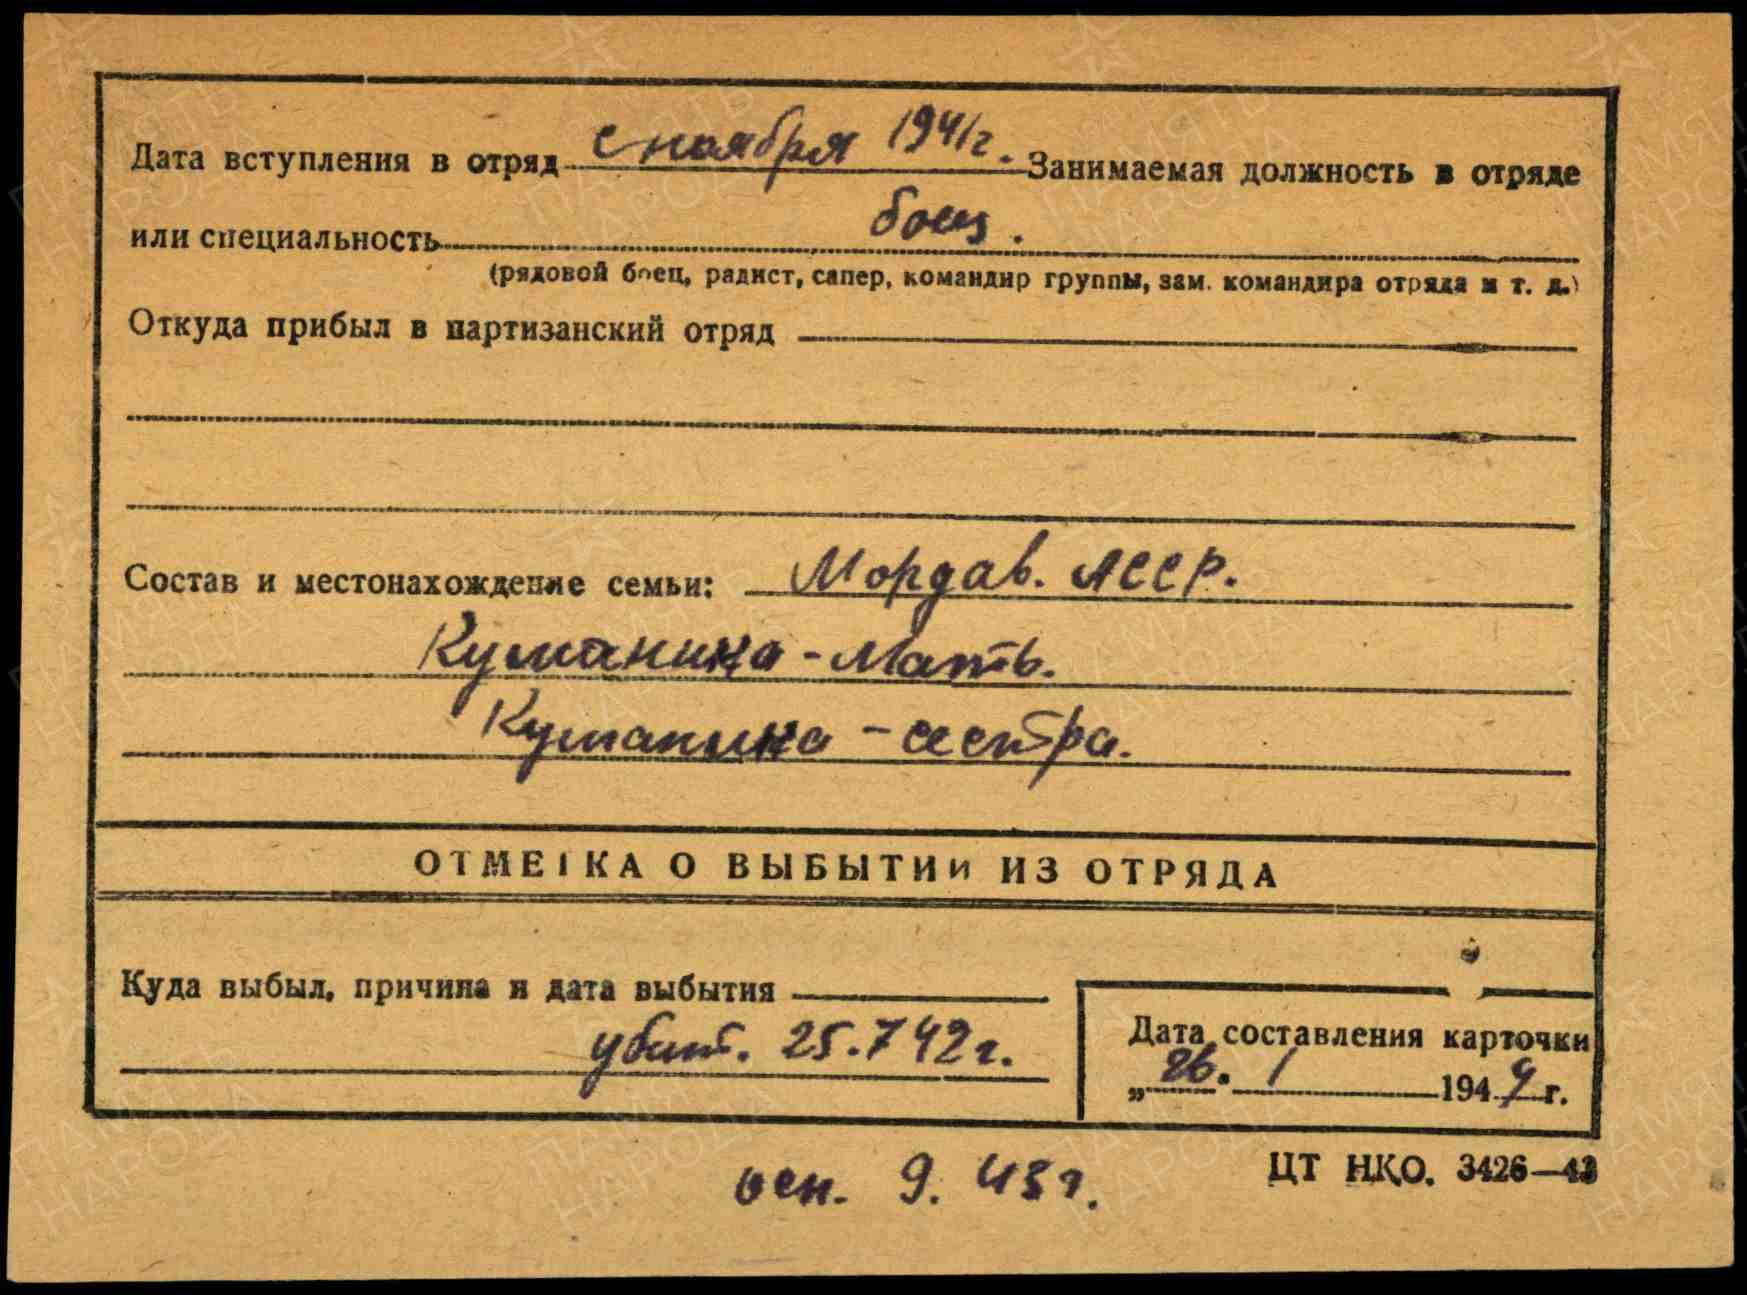 Дата вступления в отряд с ноября 1941г. Занимаемая должность в отряде
или специальность боец.
(рядовой боец, радист, сапер, командир группы, зам. командира отряда и т. д.)
Откуда прибыл в партизанский отряд
Состав и местонахождение семьи: Мордав. АССР.
Куманина - Мать.
Куманина - сестра.
ОТМЕТКА О ВЫБЫТИИ ИЗ ОТРЯДА
Куда выбыл, причина и дата выбытия
убит. 25.7 42г.
Дата составления карточки
„26. 1 1944 г.
осн. 9. 43 г.
ЦТ НКО. 3426—43
ПАМЯТЬ НАРОДА